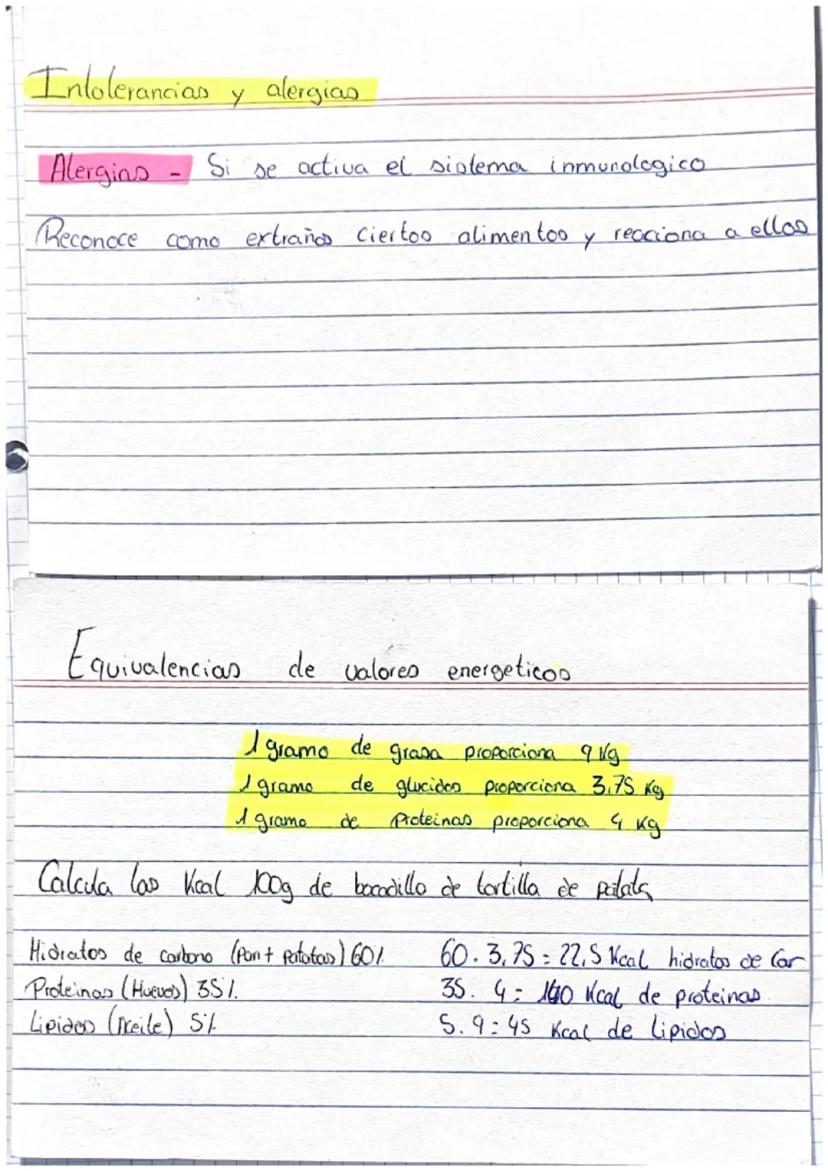 Intolerancias y alergias
Alergias - Si se activa el sistema inmunologico
Reconoce como extraños ciertos alimentos y reacciona a ellos
Equivalencias de valores energeticos
1 gramo de grasa proporciona 9 Kg
1 gramo de glucidos proporciona 3,75 Kg
1 gramo de Proteinas proporciona 4 Kg
Calcula las Kcal 100g de bocadillo de tortilla de patata
Hidratos de carbono (Pan + Patatas) 60% 60 . 3,75 = 22,5 Kcal hidratos de Car
Proteinas (Huevos) 35% 35 . 4 = 140 Kcal de proteinas.
Lipidos (Aceite) 5% 5 . 9 = 45 Kcal de Lipidos